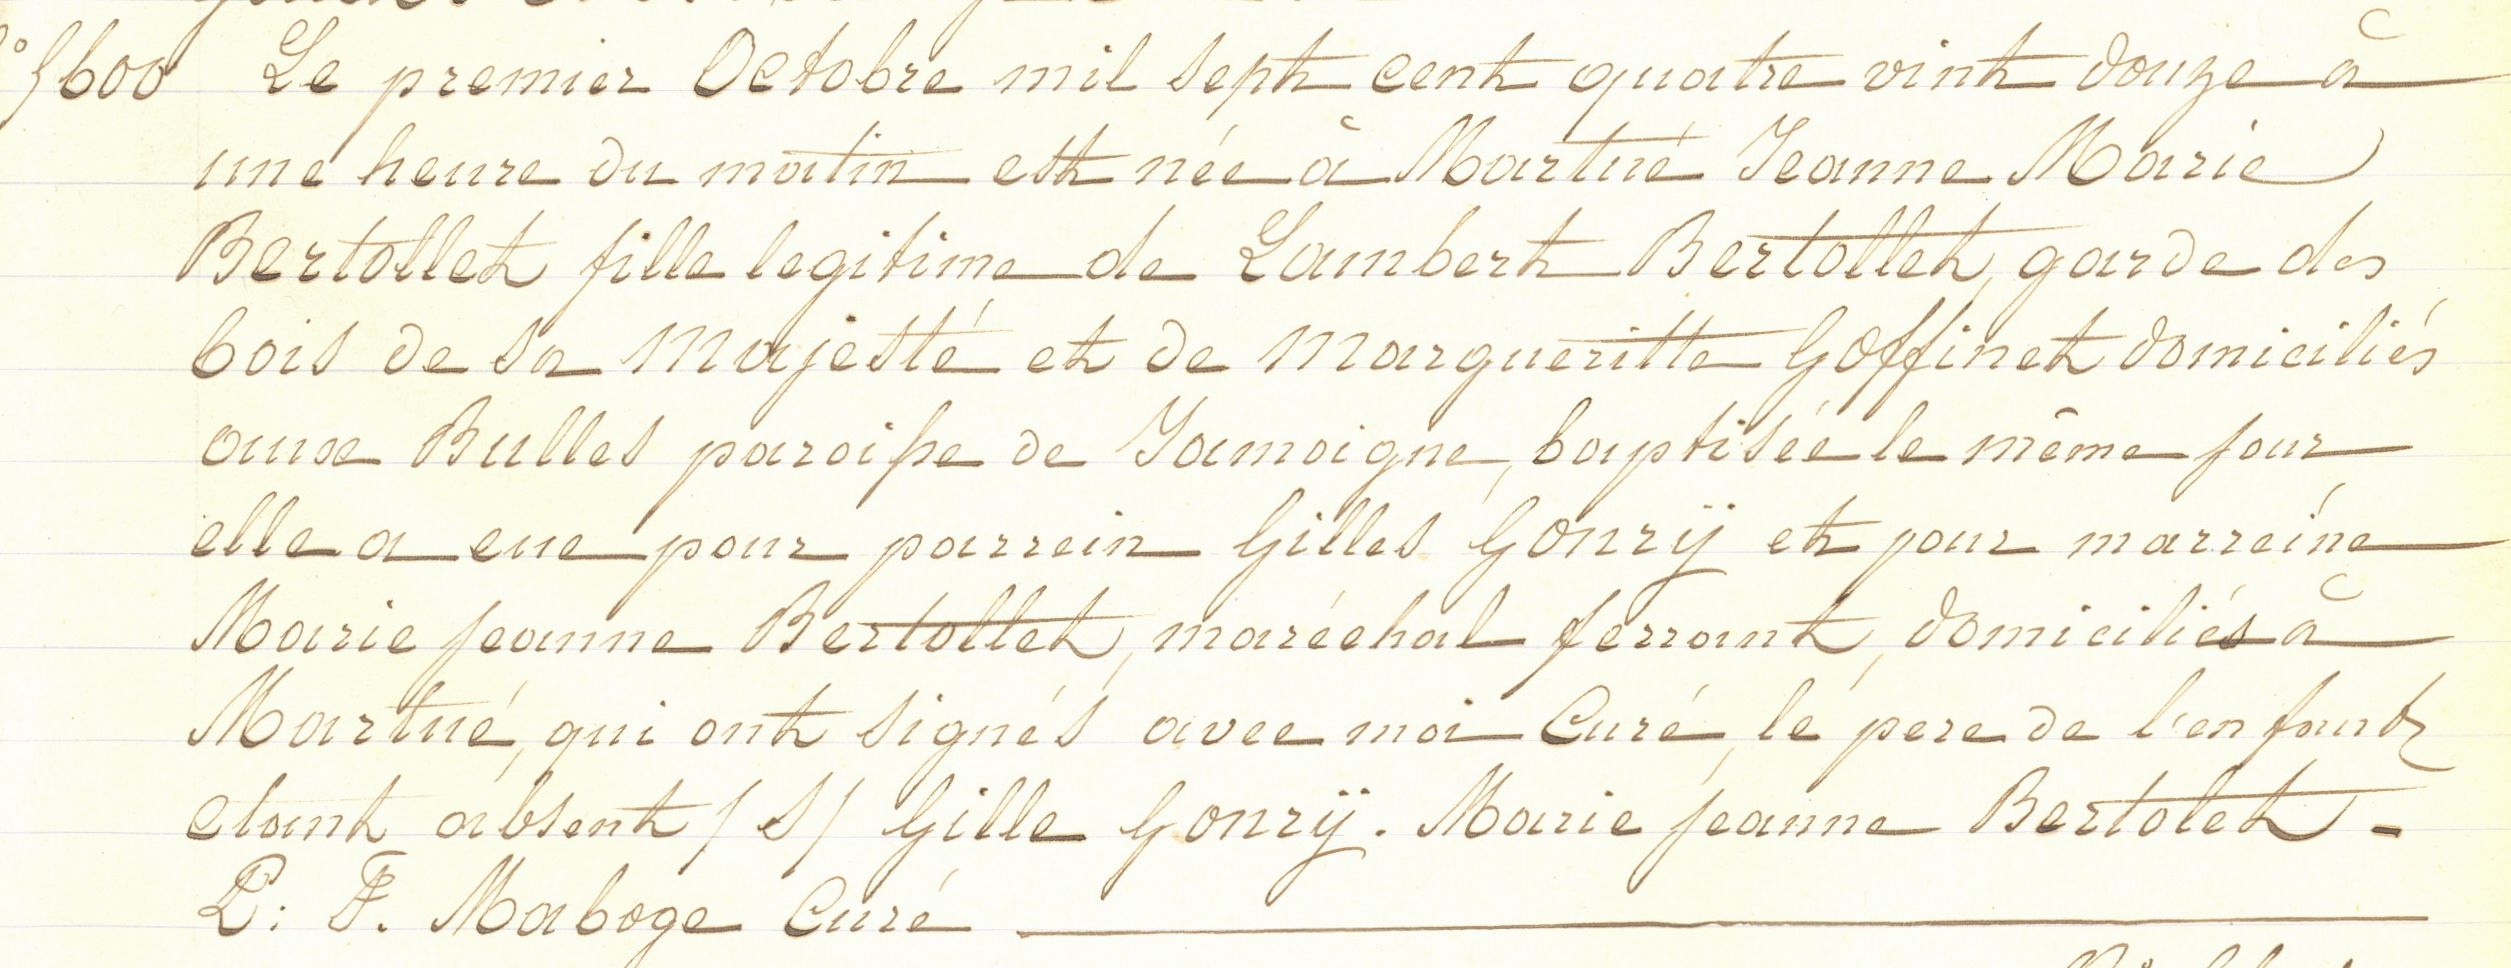 f° 600 Le premier Octobre mil sept cent quatre vint douze à
une heure du matin est née à Martué Jeanne Marie
Bertollet fille legitime de Lambert Bertollet, garde des
bois de sa Majesté et de Margueritte Goffinet domiciliés
aux Bulles paroisse de Jamoigne, baptisée le même jour
elle a eue pour parrein Gilles Gonrÿ et pour marreine
Marie Jeanne Bertollet, maréchal ferrant, domiciliés à
Martué, qui ont signés avec moi Curé, le pere de l'enfant
etant absent /S/ Gille Gonrÿ. Marie Jeanne Bertolet -
P. F. Maboge Curé